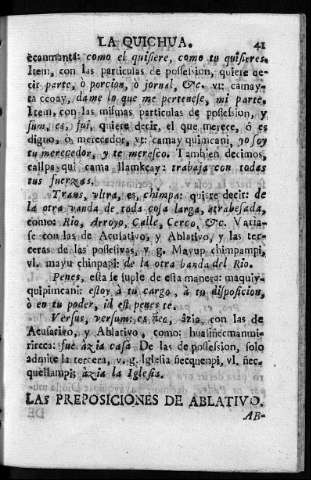 LA QUICHUA. 41
ccanmanta: como el quisiere, como tu quisieres.
Item, con las particulas de possession, quiere de-
cir parte, ò porcion, ò jornal, &c. vt: camay-
ta ccoay, dame lo que me pertenese, mi parte,
Item, con las mismas particulas de possession, y
sum, es, fui, quiere decir, el que merece, ó es
digno, ò merecedor, vt: camay quimcani, yo soy
tu merecedor, y te meresco. Tambien decimos,
callpa qui cama llamkcay: trabaja con todas
tus fuerzas.
Trans, vltra, es, chimpa: quiere decir: de
la otra vanda de toda cosa larga, atrabesada,
como: Rio, Arroyo, Calle, Cerco, &c. Varia-
se con los de Acusativo, y Ablativo, y las ter-
ceras de las possesivas, v. g. Mayup chimpampi,
vl. mayu chinpapi: de la otra banda del Rio.
Penes, esta se suple de esta manera: maquiy-
quipimcani: estoy à tu cargo, à tu disposicion,
ò en tu poder, id est penes te.
Versus, versum, es ñec, àzia, con las de
Acusativo, y Ablativo, como: huasiñecmanmi
ricca: fue àzia casa De las de possession, solo
admite la tercera, v. g. Iglesia ñecquenpi, vl. ñec.
quellampi, àzia la Iglesia.
LAS PREPOSICIONES DE ABLATIVO.
AB-